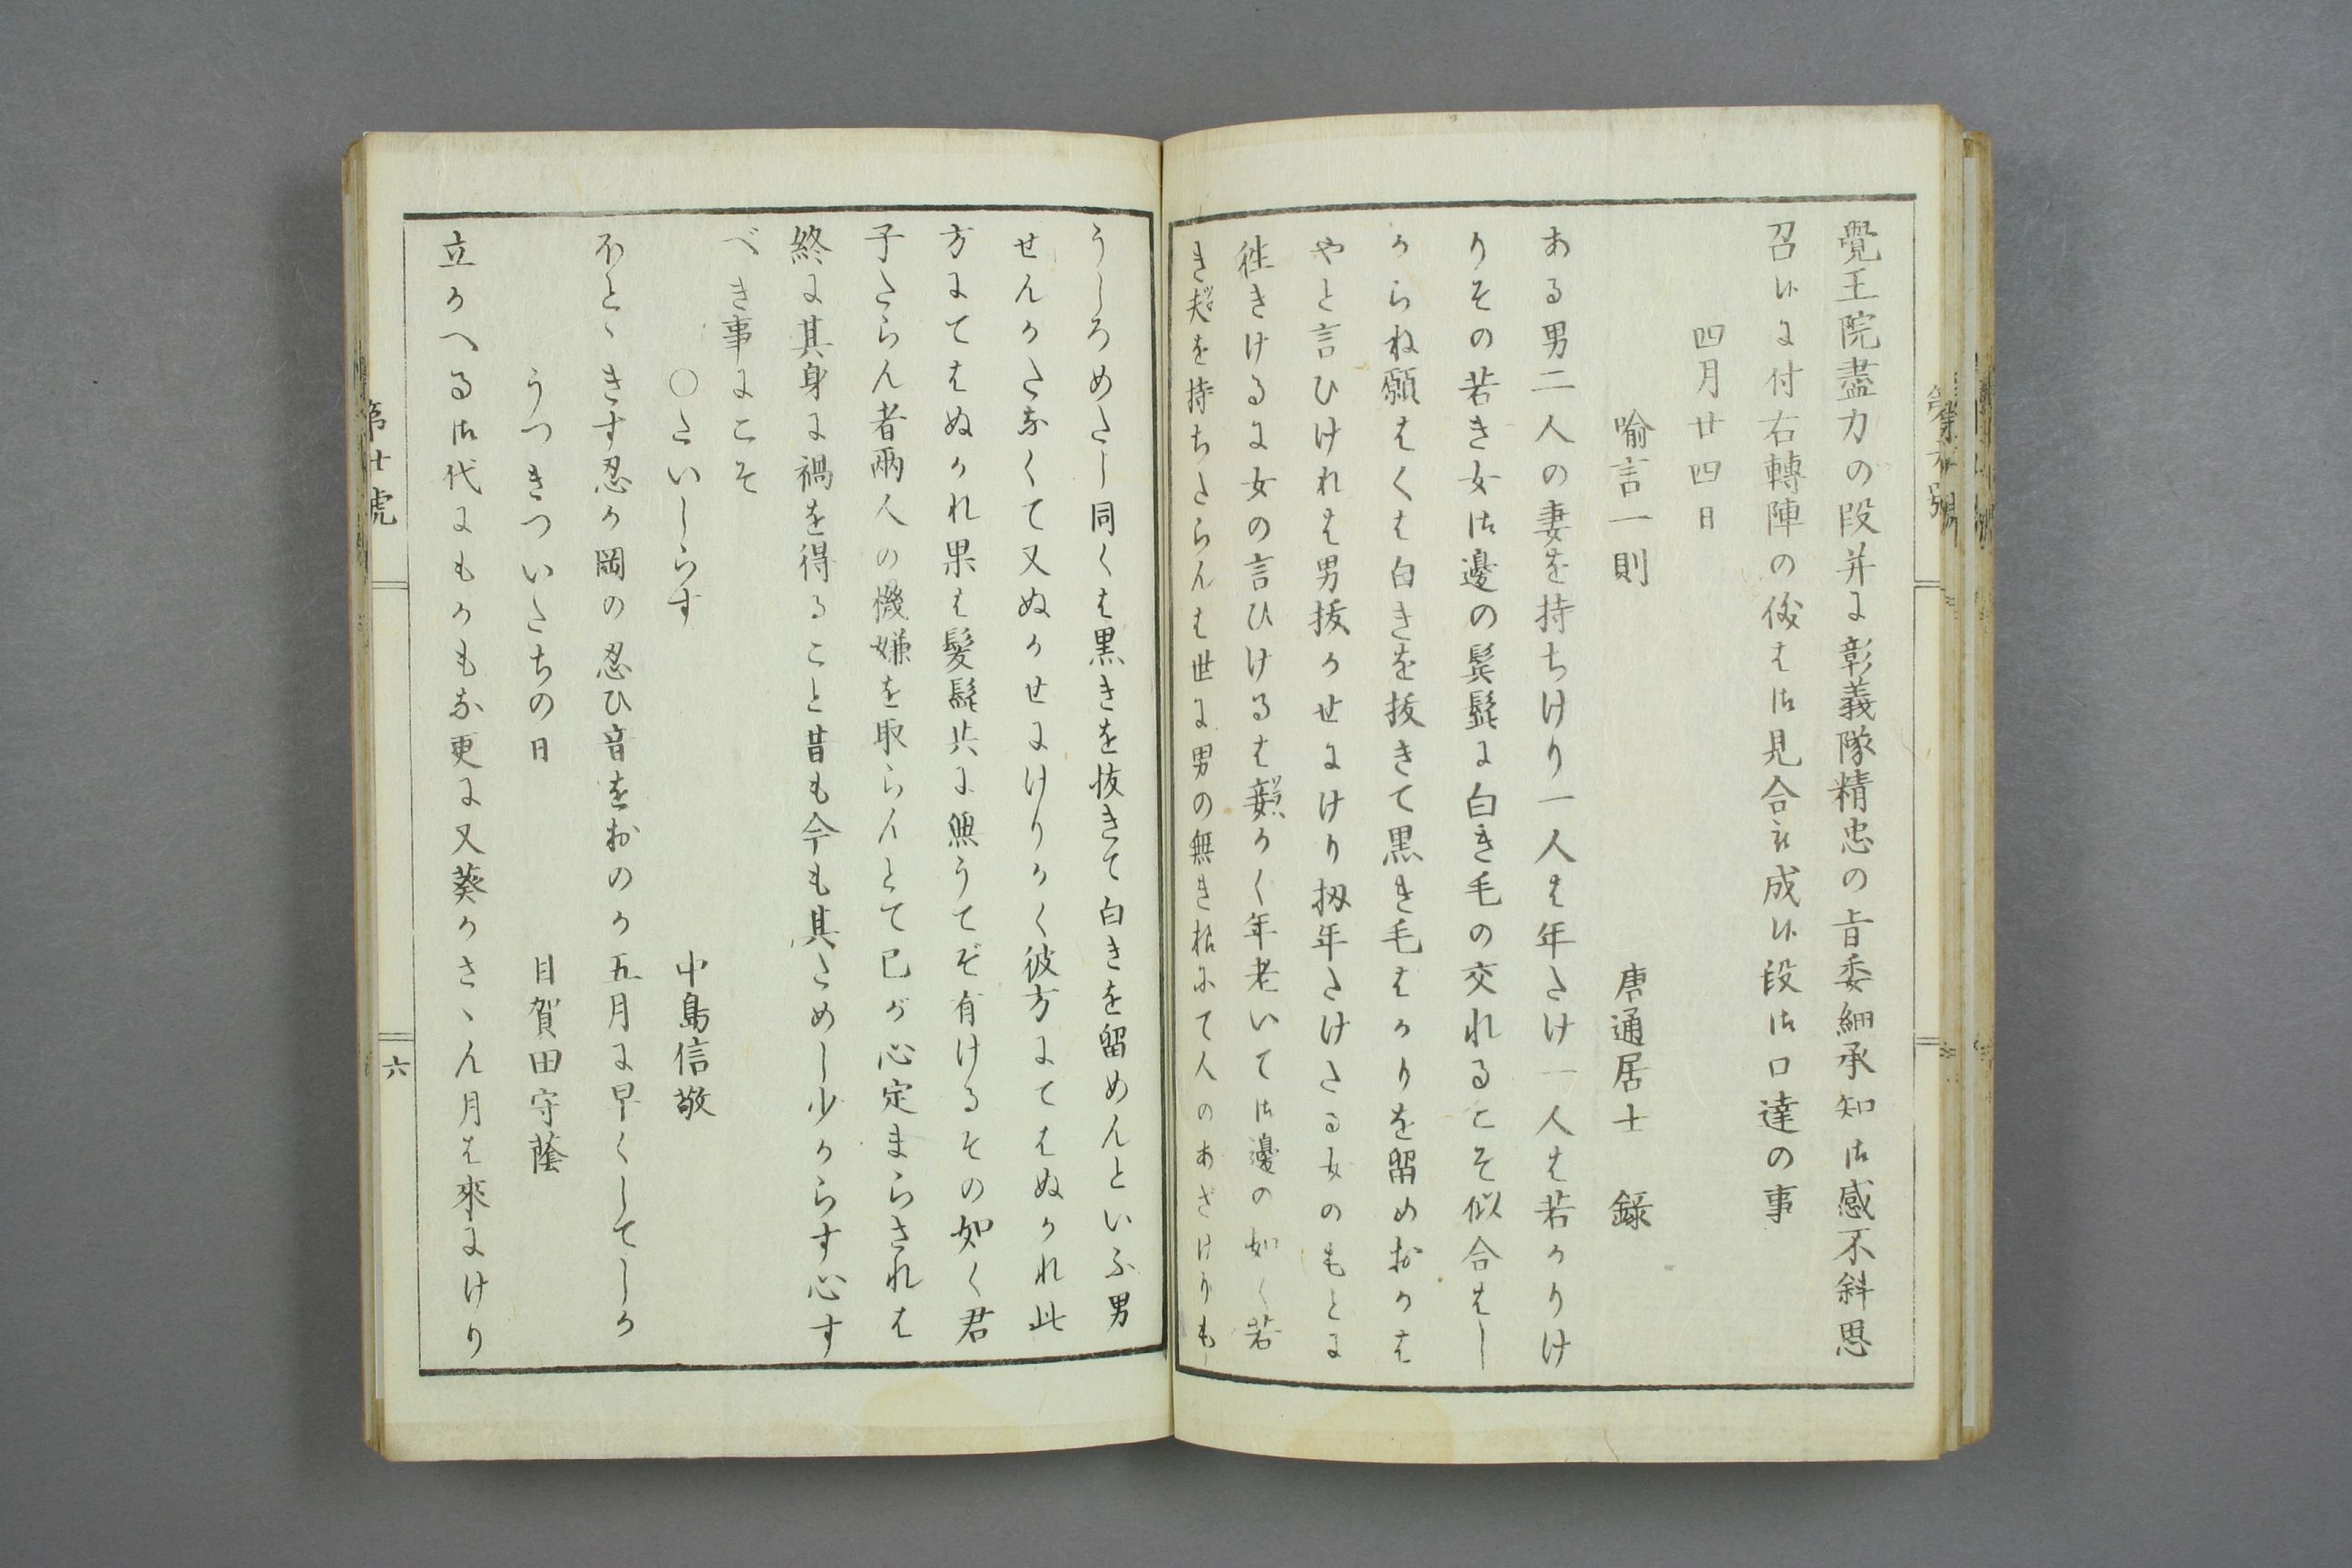 覺王院盡力の段并に彰義隊精忠の旨委細承知御感不斜思
召候に付右轉陣の後は御見合被成候段御口達の事
四月廿四日
喩言一則 唐通居士 録
ある男二人の妻を持ちけり一人は年たけ一人は若かりけ
りその若き女御邊の髪髭に白き毛の交れるこそ似合はし
からね願はくは白きを抜きて黒き毛はかりを留めおかは
やと言ひけれは男抜かせにけり扨年たけたる女のもとに
往きけるに女の言ひけるは妾かく年老いて御邊の如く若
き夫を持ちたらんは世に男の無き様にて人のあざけりも
うしろめたし同くは黒きを抜きて白きを留めんといふ男
せんかたなくて又ぬかせにけりかく彼方にてはぬかれ此
方にてはぬかれ果は髪髭共に無うてぞ有けるその如く君
子たらん者兩人の機嫌を取らんとて己が心定まらされは
終に其身に禍を得ること昔も今も其ためし少からす心す
べき事にこそ
○たいしらす 中島信敬
ほとゝきす忍か岡の忍ひ音をおのか五月に早くしてしか
うつきついたちの日 日賀田守蔭
立かへる御代にもかもな更に又葵かさゝん月は來にけり
第廿號
六